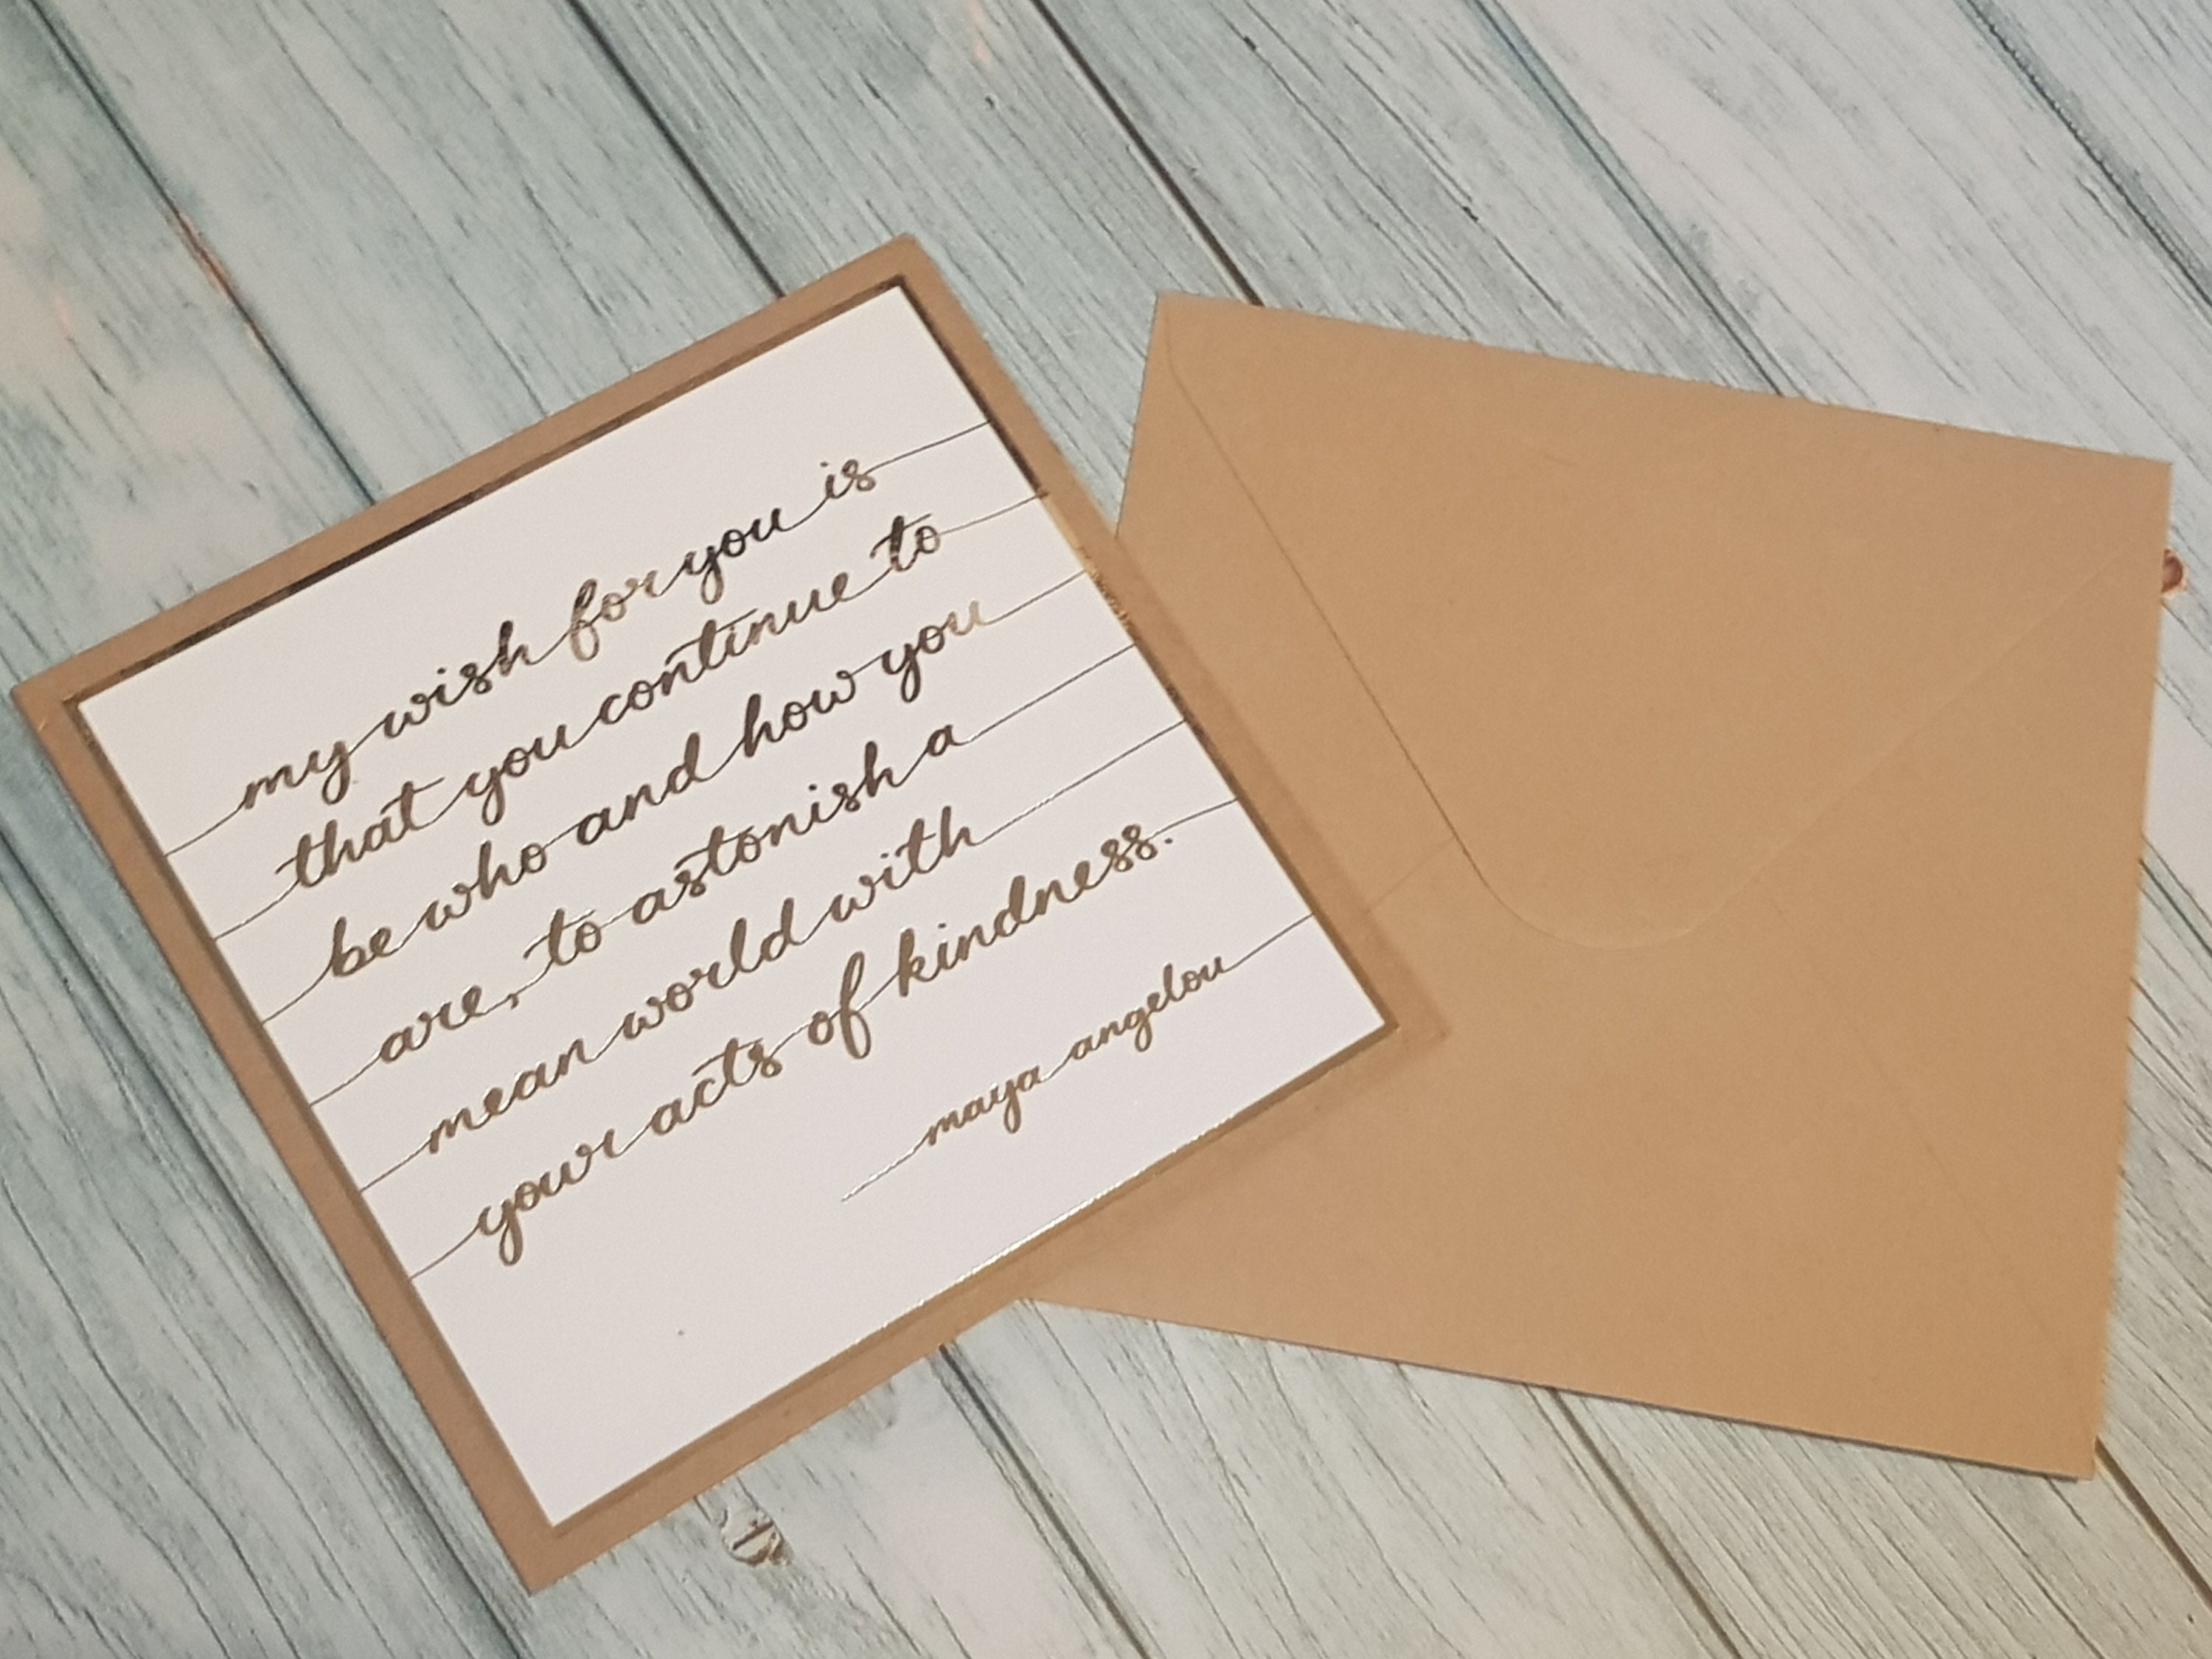 my wish for you is
that you continue to
be who and how you
are, to astonish a
mean world with
your acts of kindness.
maya angelou